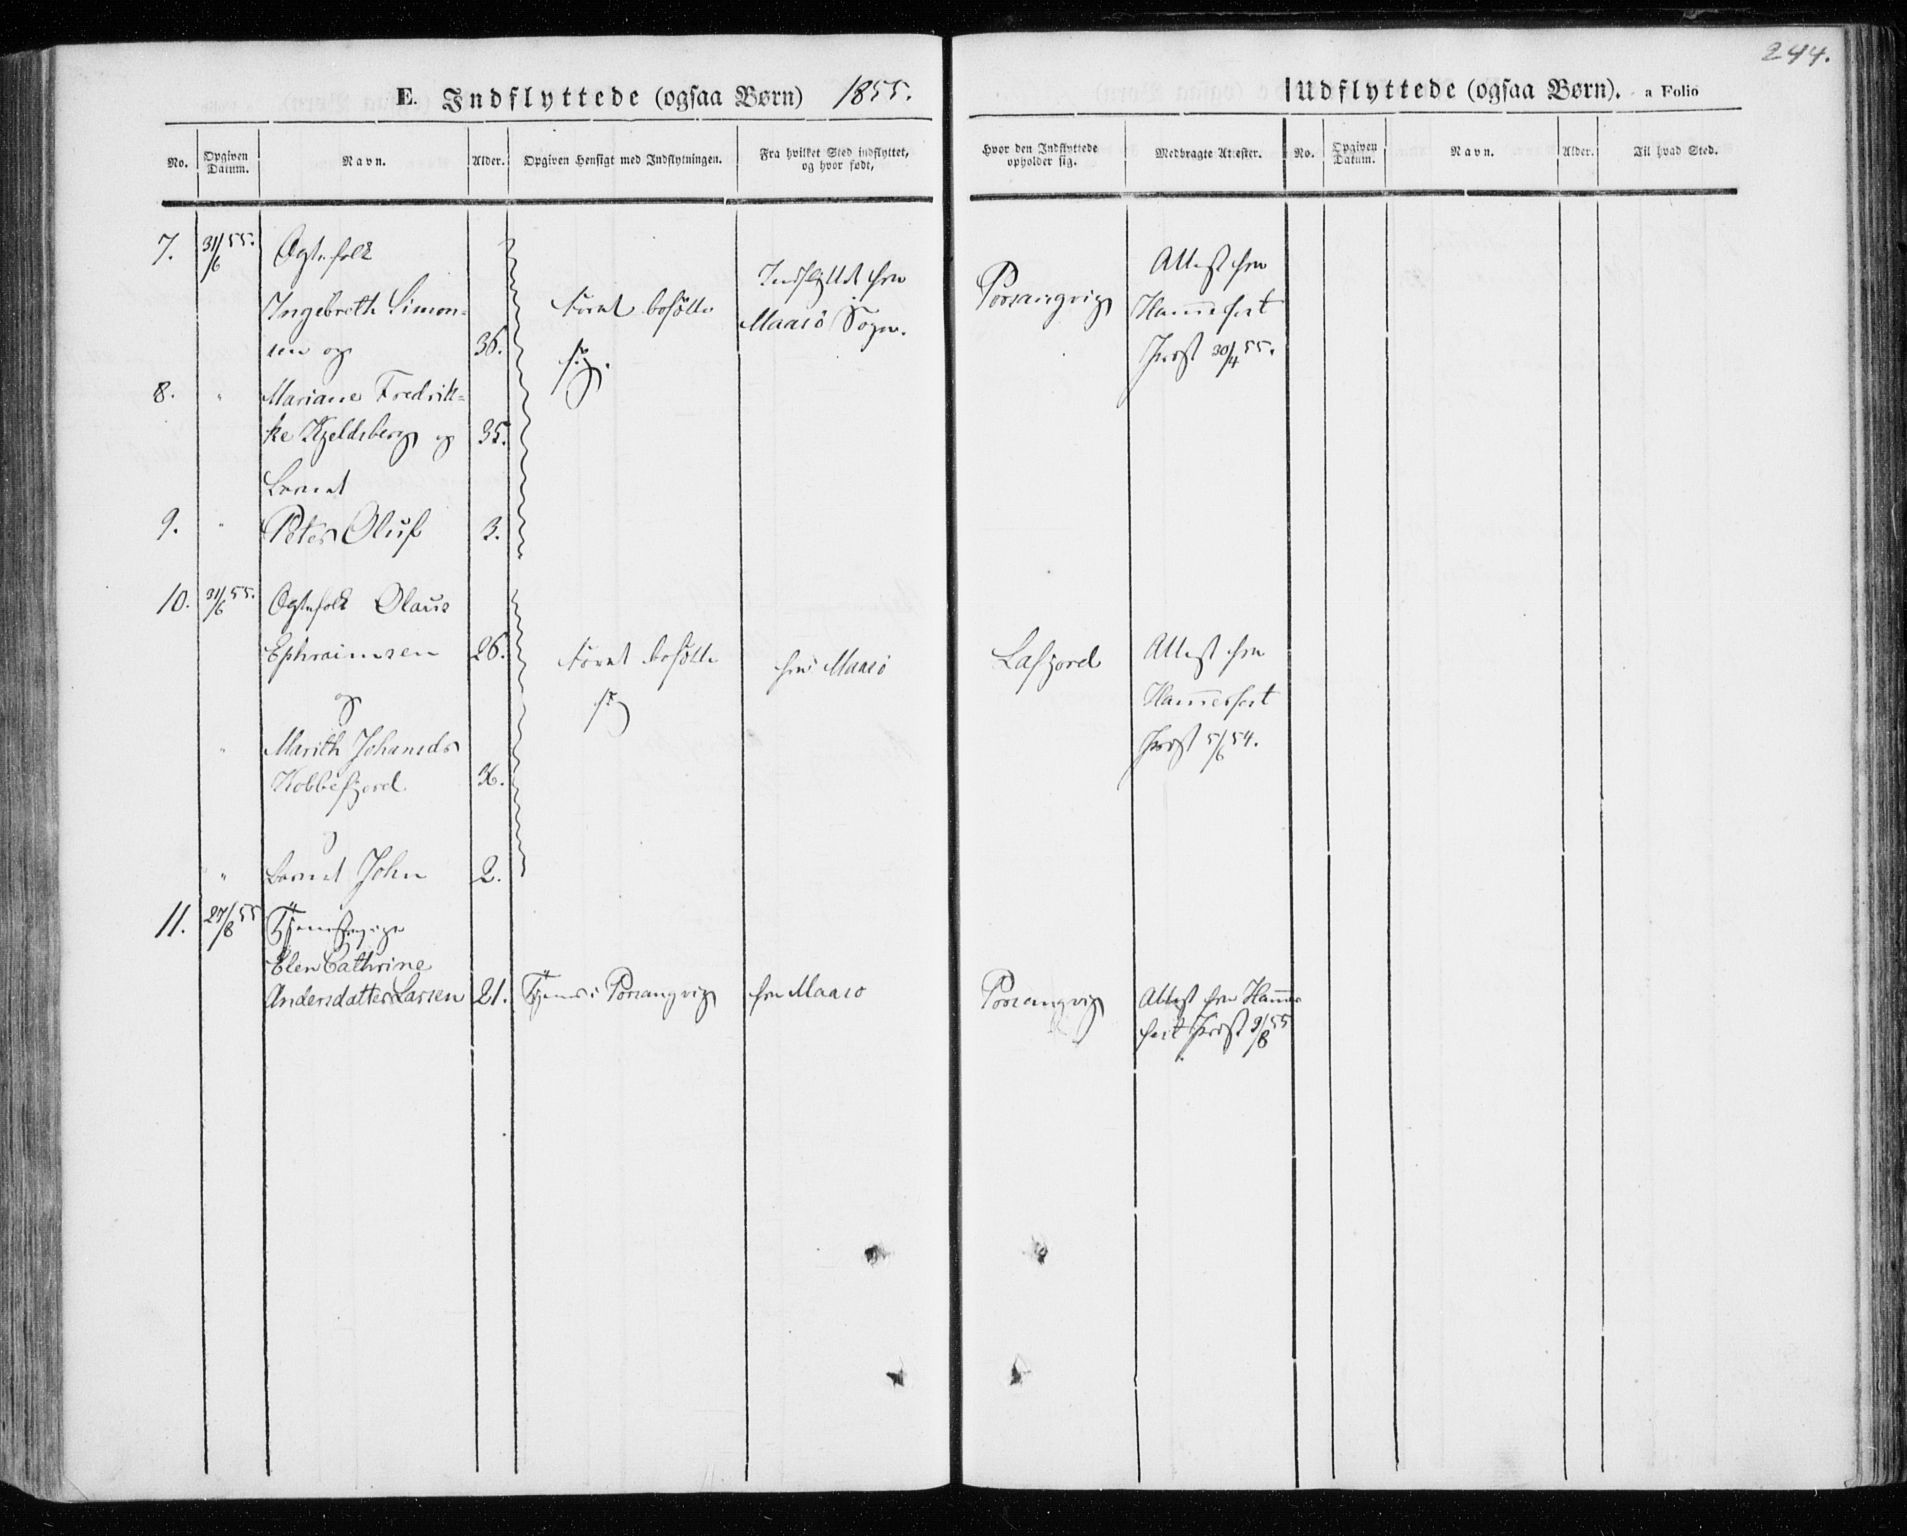 244.
E. Indflyttede (ogsaa Børn) 1855.
Udflyttede (ogsaa Børn). a Folio
No.
Opgiven Datum.
Navn.
Alder.
Opgiven Hensigt med Indflytningen.
Fra hvilket Sted indflyttet, og hvor født,
Hvor den Indflyttede opholder sig.
Medbragte Attester.
No.
Opgiven Datum.
Navn.
Alder.
Til hvad Sted.
7. 31/6 55. Ægtefolk
Ingebreth Simon-
sen og 36.
bosætte
sig.
Indflyttet fra
Maasö Sogn.
Porsangvig
Attest fra
Hammerfest
Prost 30/4 55.
8. " Mariane Fredrik-
ke Kjeldsberg og 35.
Barnet
9. " Peter Oluf 3.
10. 31/6 55. Ægtefolk Olaus
Ephraimsen 26.
og
bosætte
sig
fra Maasö
Lafjord
Attest fra
Hammerfest
Prost 5/6 54.
" Marith Johansdr
Kobbefjord 36.
" Barnet John 2.
11. 27/8 55 Tjenestepige
Elen Cathrine
Andersdatter Larsen 21. Tjene i Porsangvig fra Maasö
Porsangvig
Attest fra Hammer
fest Prost 9/8 55